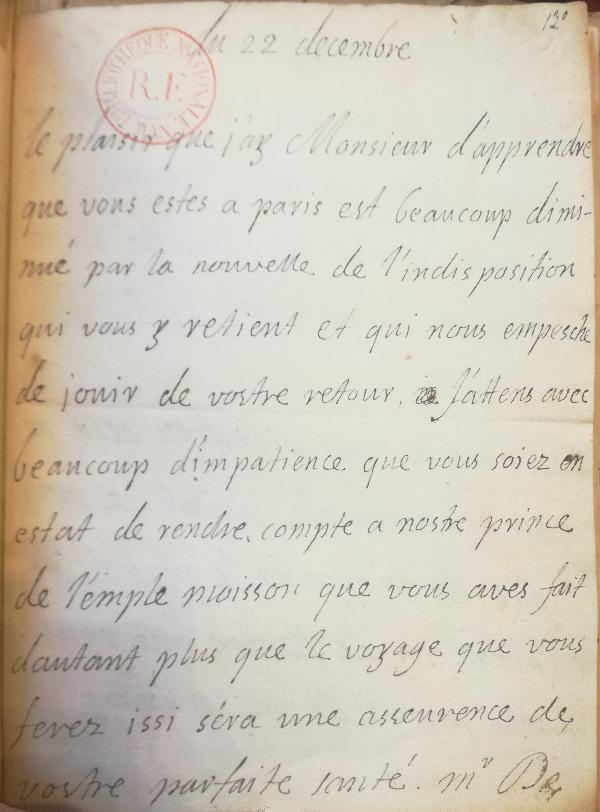 120
du 22 decembre
BIBLIOTHEQUE NATIONALE
R.F.
le plaisir que j'ay Monsieur d'apprendre
que vous estes a paris est beaucoup dimi-
nué par la nouvelle de l'indisposition
qui vous y retient et qui nous empesche
de jouir de vostre retour, J'attens avec
beaucoup d'impatience que vous soiez en
estat de rendre compte a nostre prince
de l'emple moisson que vous aves fait
dautant plus que le voyage que vous
ferez issi séra une asseurence de
vostre parfaite santé. mr De